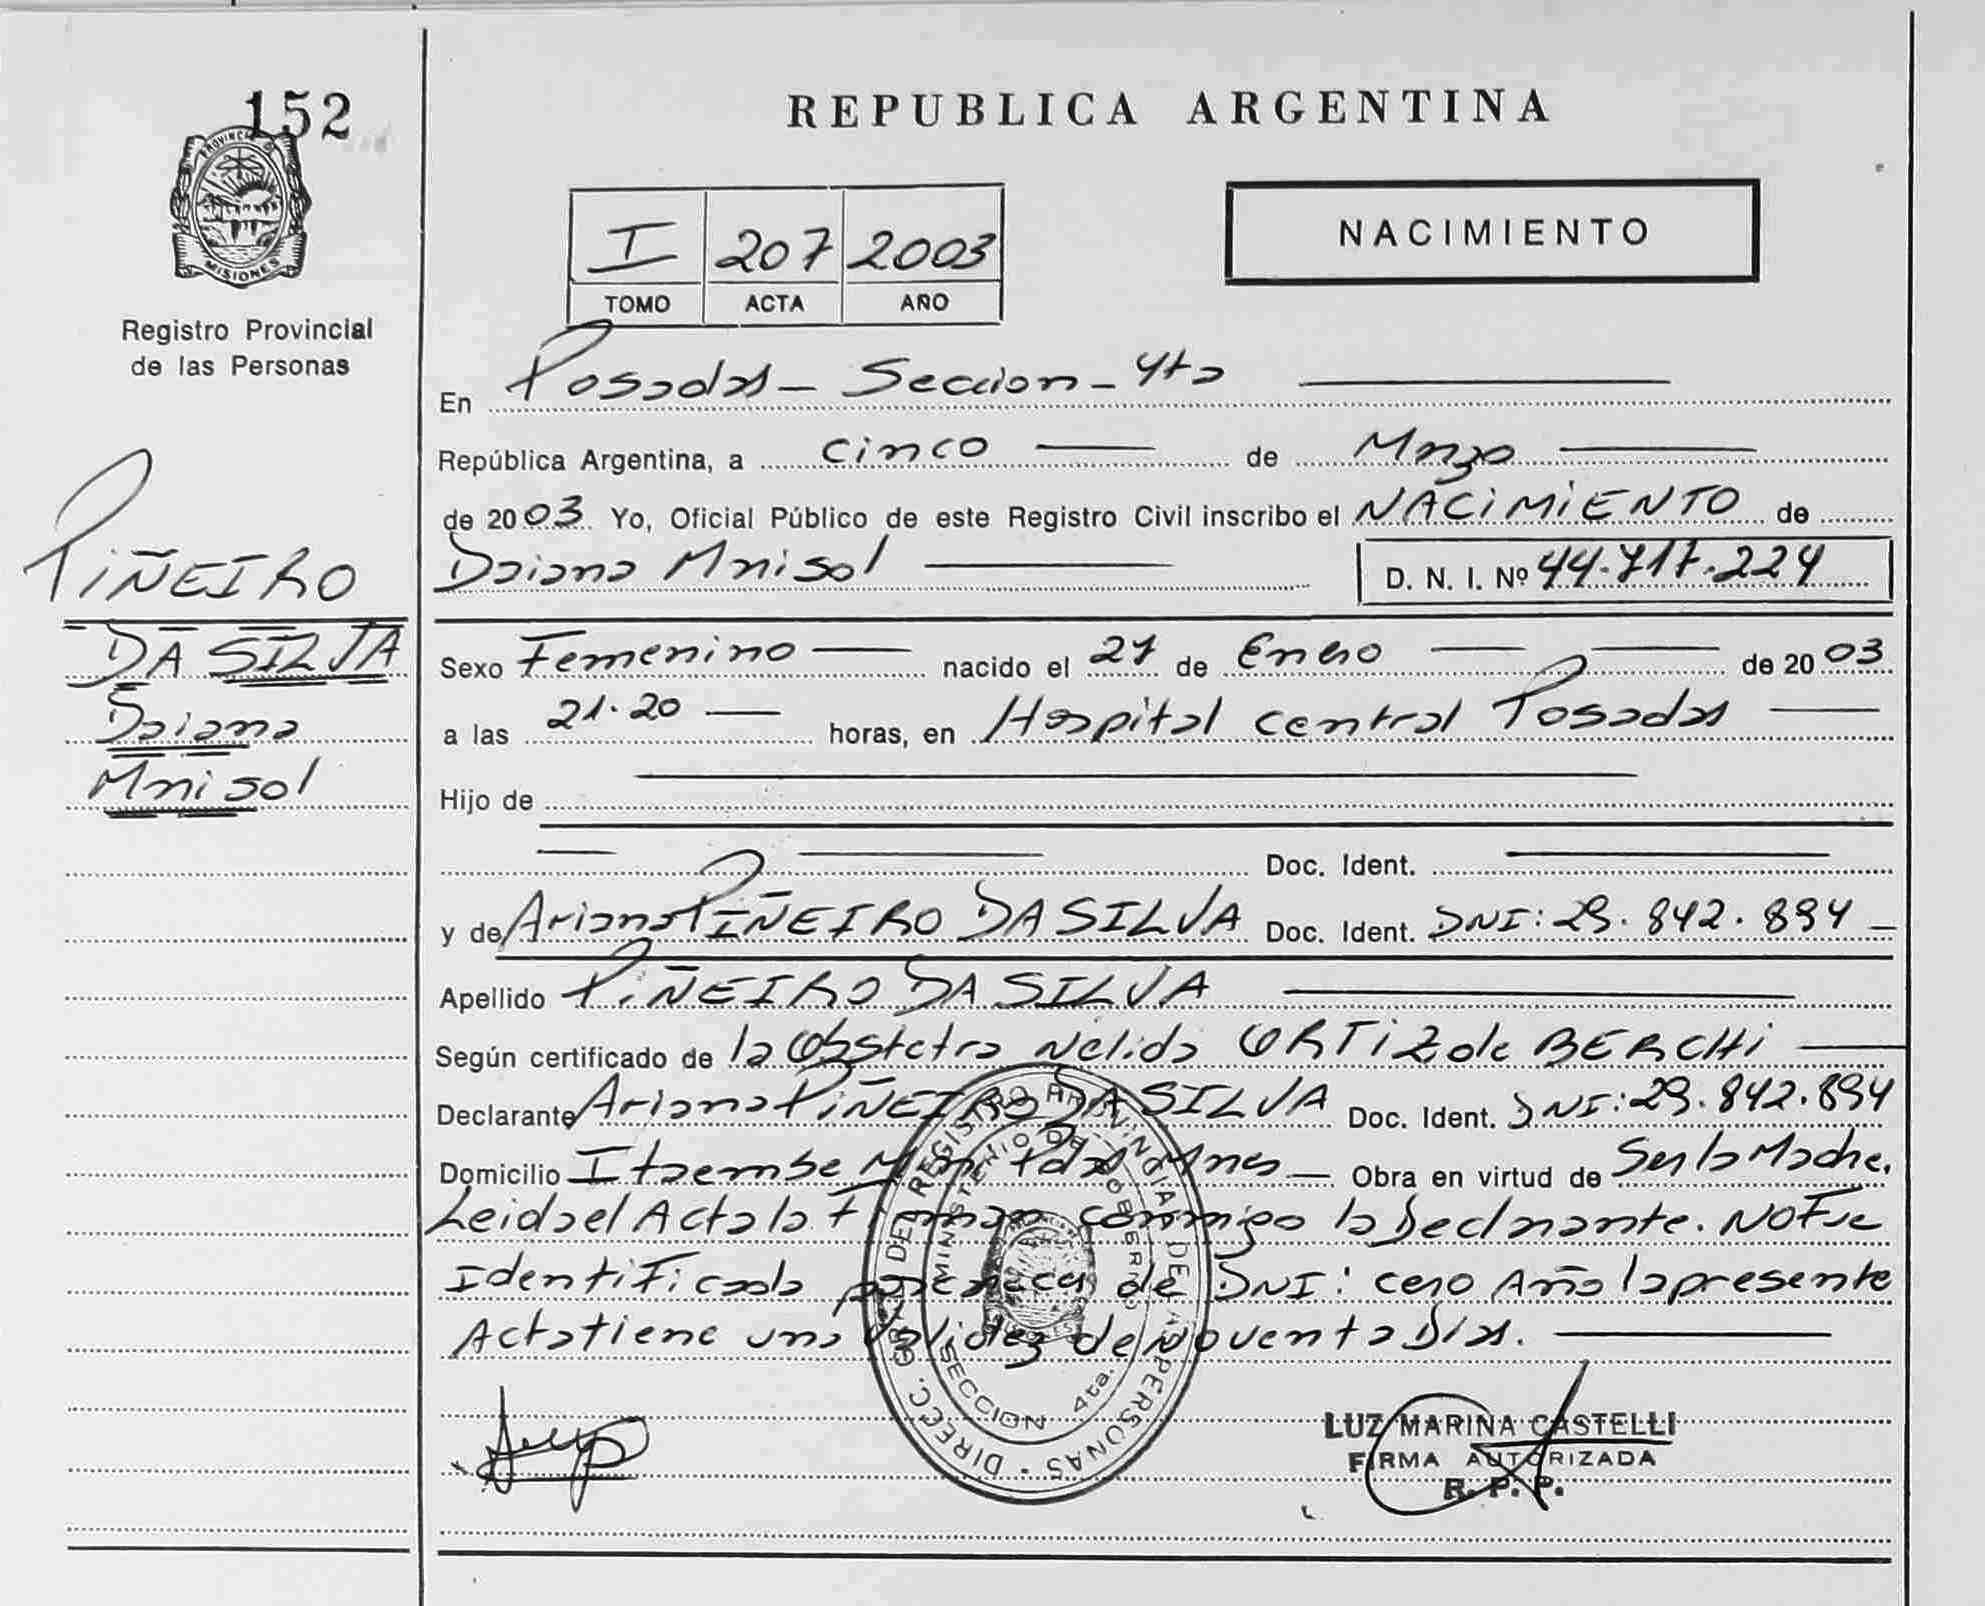 152
PROVINCIA DE
MISIONES
Registro Provincial
de las Personas
PIÑEIRO
DA SILVA
Daiana
Marisol
REPUBLICA ARGENTINA
I 207 2003
TOMO ACTA AÑO
NACIMIENTO
En Posadas - Seccion - 4ta
República Argentina, a cinco de Marzo
de 2003 Yo, Oficial Público de este Registro Civil inscribo el NACIMIENTO de
Daiana Marisol D. N. I. Nº 44.717.224
Sexo Femenino nacido el 27 de Enero de 2003
a las 21.20 horas, en Hospital central Posadas
Hijo de
Doc. Ident.
y de Ariana PIÑEIRO DA SILVA Doc. Ident. DNI: 29.842.894
Apellido PIÑEIRO DA SILVA
Según certificado de la Obstetra Nelida ORTIZ de BERCHI
Declarante Ariana PIÑEIRO DA SILVA Doc. Ident. DNI: 29.842.894
Domicilio Itaembe Mini Pdas Mnes Obra en virtud de Ser la Madre.
Leida el Acta la Firman conmigo la Declarante. NO Fue
Identificada por de DNI: cero Año la presente
Acta tiene una validez de Noventa Dias.
DIRECC. GRAL DEL REGISTRO PROVINCIAL DE LAS PERSONAS
MINISTERIO DE GOBIERNO
SECCION 4ta.
LUZ MARINA CASTELLI
FIRMA AUTORIZADA
R. P. P.